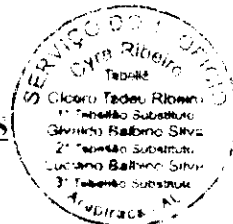 SERVIÇO DO 1º OFÍCIO
Cyra Ribeiro
Tabeliã
Cícero Tadeu Ribeiro
1º Tabelião Substituto
Givaldo Balbino Silva
2º Tabelião Substituto
Luciano Balbino Silva
3º Tabelião Substituto
Arapiraca - AL